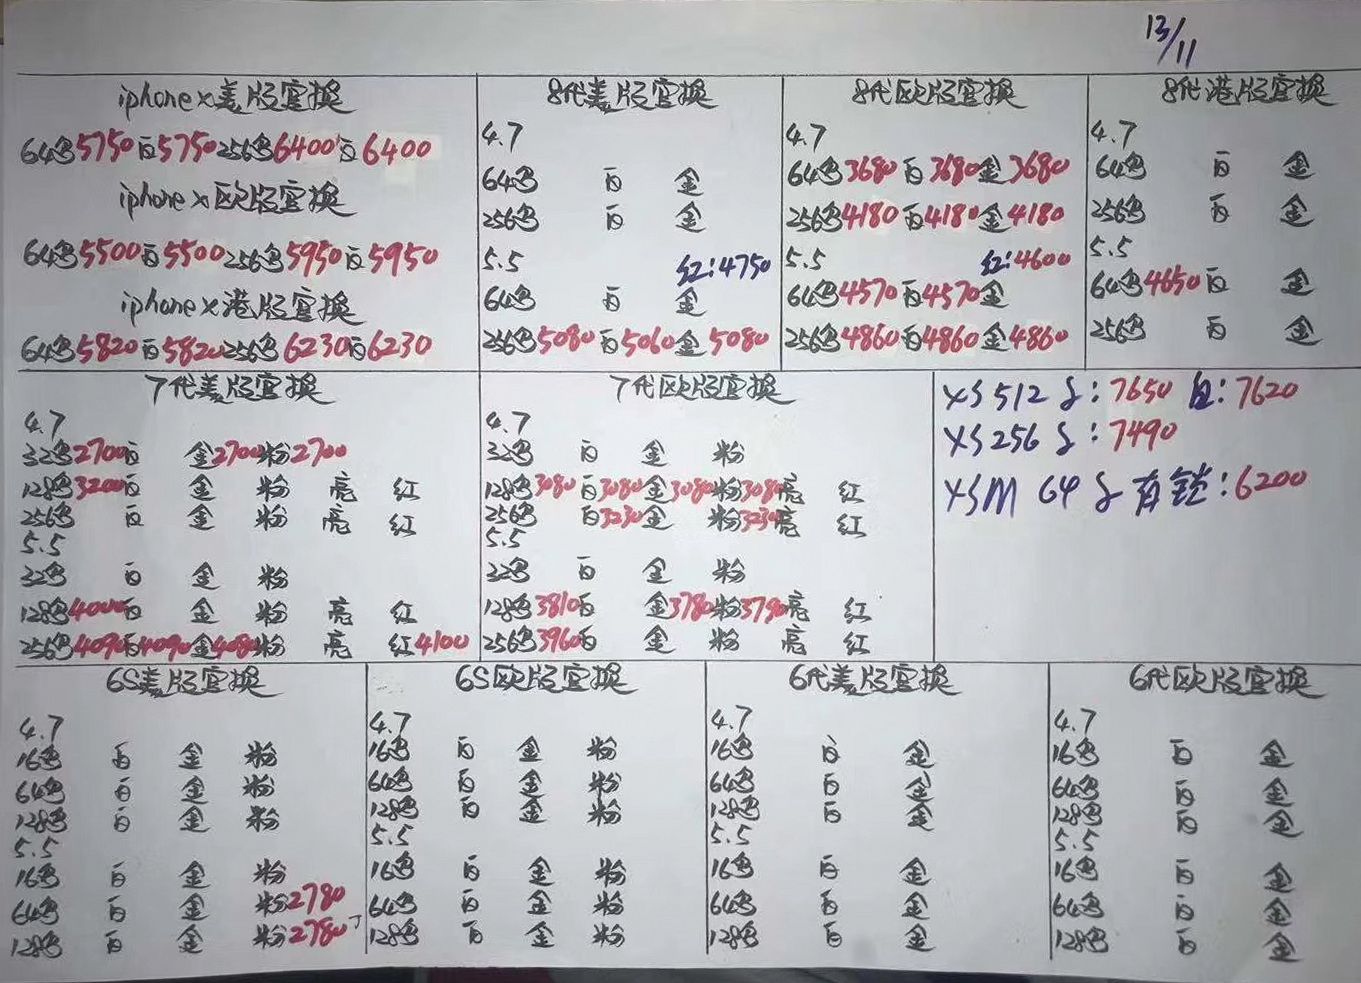 13/11
iphone x美版官换
64黑5750白5750 256黑6400白6400
iphone x欧版官换
64黑5500白5500 256黑5950白5950
iphone x港版官换
64黑5820白5820 256黑6230白6230
8代美版官换
4.7
64黑 白 金
256黑 白 金
5.5 红:4750
64黑 白 金
256黑5080白5060金5080
8代欧版官换
4.7
64黑3680白3680金3680
256黑4180白4180金4180
5.5 红:4600
64黑4570白4570金
256黑4860白4860金4860
8代港版官换
4.7
64黑 白 金
256黑 白 金
5.5
64黑4650白 金
256黑 白 金
7代美版官换
4.7
32黑2700白 金2700粉2700
128黑3200白 金 粉 亮 红
256黑 白 金 粉 亮 红
5.5
32黑 白 金 粉
128黑4000白 金 粉 亮 红
256黑4090白4090金4080粉 亮 红4100
7代欧版官换
4.7
32黑 白 金 粉
128黑3080白3080金3080粉3080亮 红
256黑 白3230金 粉3230亮 红
5.5
32黑 白 金 粉
128黑3810白 金3780粉3790亮 红
256黑3960白 金 粉 亮 红
XS 512 J: 7650 白: 7620
XS 256 J: 7490
XSM 64 J 有锁: 6200
6S美版官换
4.7
16黑 白 金 粉
64黑 白 金 粉
128黑 白 金 粉
5.5
16黑 白 金 粉
64黑 白 金 粉2780
128黑 白 金 粉2780
6S欧版官换
4.7
16黑 白 金 粉
64黑 白 金 粉
128黑 白 金 粉
5.5
16黑 白 金 粉
64黑 白 金 粉
128黑 白 金 粉
6代美版官换
4.7
16黑 白 金
64黑 白 金
128黑 白 金
5.5
16黑 白 金
64黑 白 金
128黑 白 金
6代欧版官换
4.7
16黑 白 金
64黑 白 金
128黑 白 金
5.5
16黑 白 金
64黑 白 金
128黑 白 金